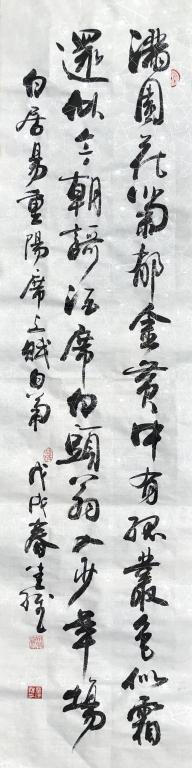 满園花菊郁金黄中有孤叢色似霜
還似今朝歌酒席白頭翁入少年場
白居易重陽席上賦白菊
戊戌春